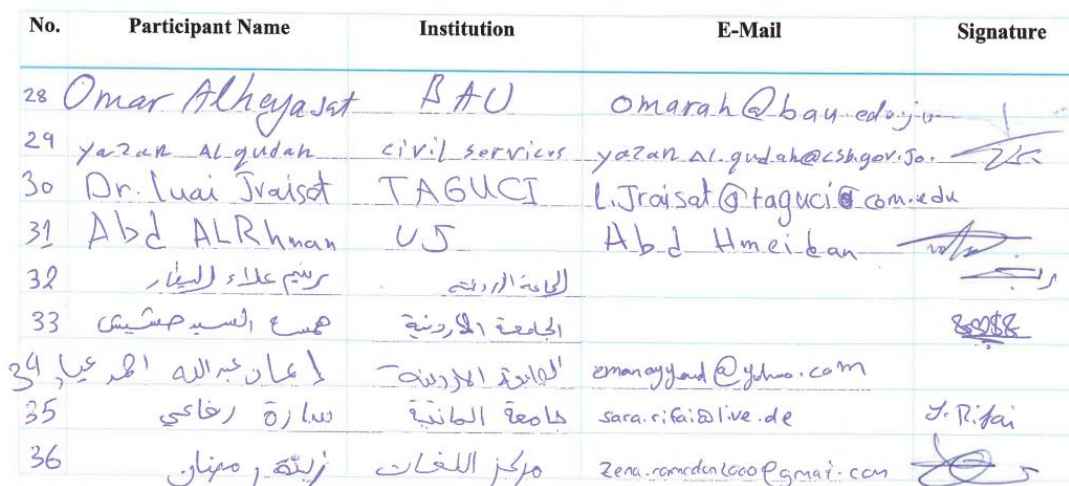 No. Participant Name Institution E-Mail Signature
28 Omar Alheyasat BAU omarah@bau.edu.jo
29 yazan AL.qudah civil services yazan AL.qudah@csb.gov.Jo.
30 Dr. Luai Jraisat TAGUCI L.Jraisat@taguci.com.edu
31 Abd ALRhman UJ Abd Hmeidan
32 علاء البيطار الجامعة الاردنية
33 همسة السيد حشيش الجامعة الأردنية
34 إيمان عبدالله احمد عياد الجامعة الاردنية emanayyad@yahoo.com
35 سارة رفاعي جامعة المانية sara.rifai@live.de S.Rifai
36 زينة رمضان مركز اللغات